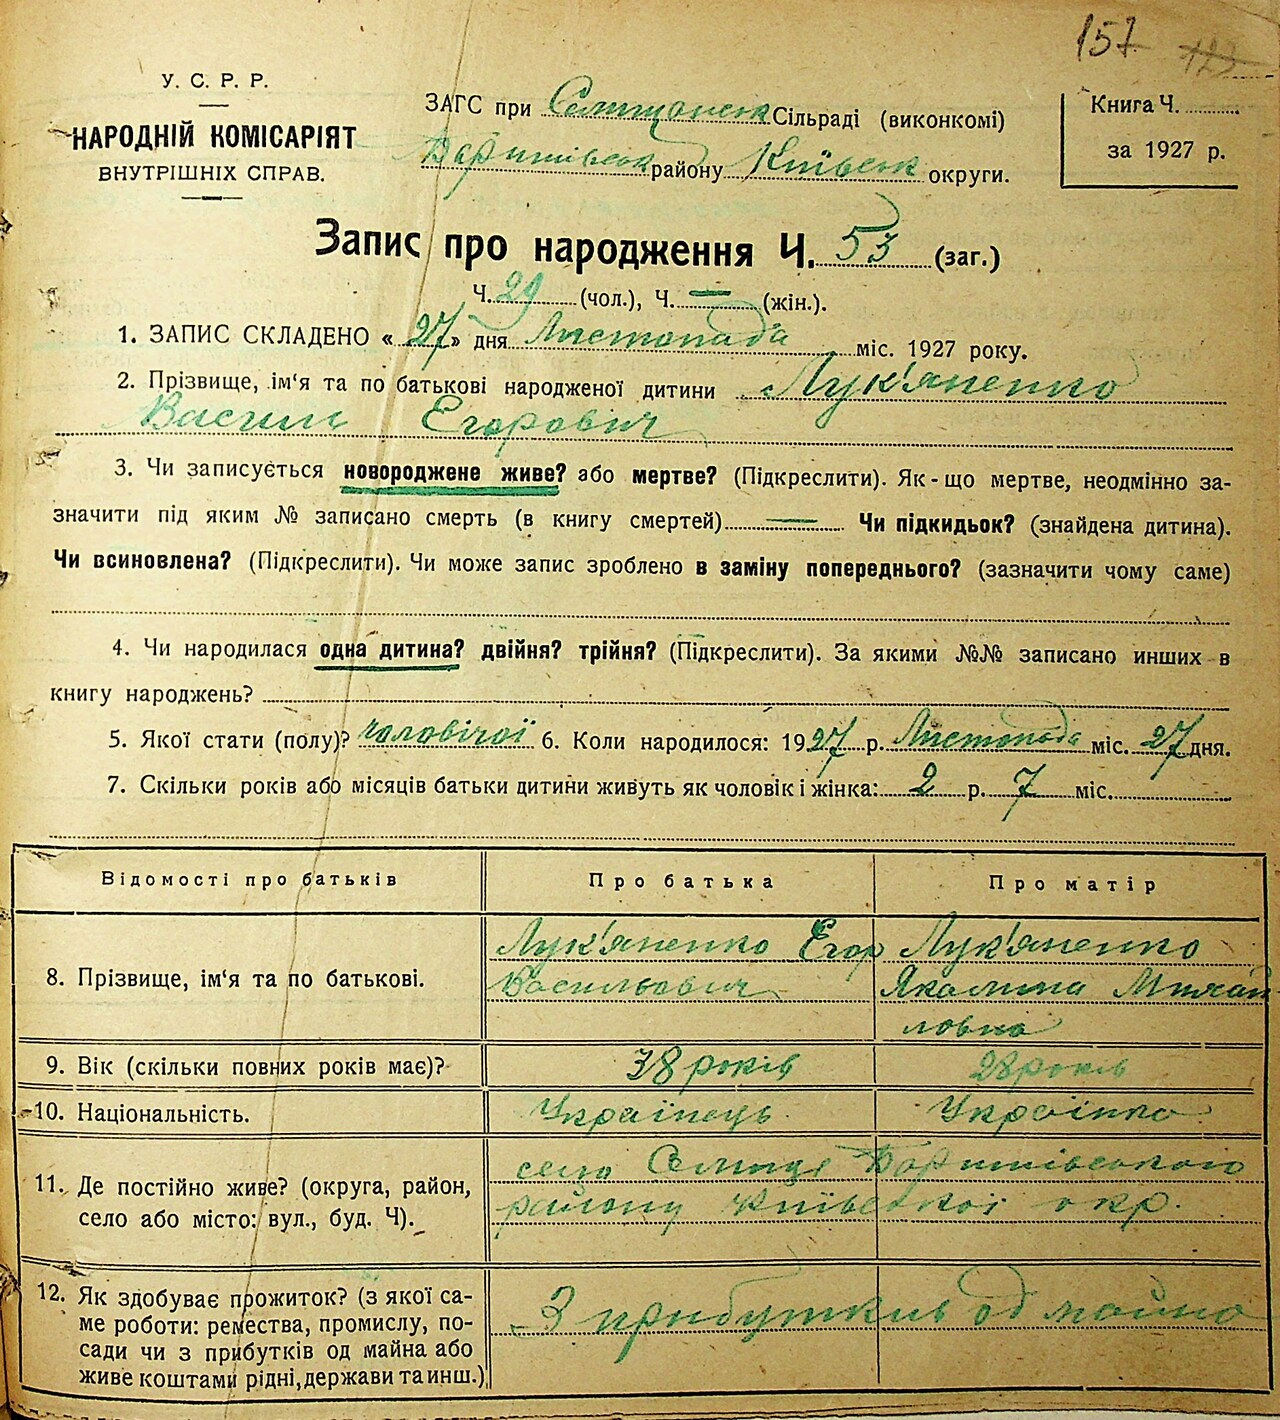 157 123
У. С. Р. Р.
НАРОДНІЙ КОМІСАРІЯТ
ВНУТРІШНІХ СПРАВ.
ЗАГС при Селищанськ Сільраді (виконкомі)
Баришівськ району Київськ округи.
Книга Ч.
за 1927 р.
Запис про народження Ч. 53 (заг.)
Ч. 29 (чол.), Ч. — (жін.).
1. ЗАПИС СКЛАДЕНО « 27 » дня Листопада міс. 1927 року.
2. Прізвище, ім‘я та по батькові народженої дитини Лук'яненко
Василь Егорович
3. Чи записується новороджене живе? або мертве? (Підкреслити). Як-що мертве, неодмінно за-
значити під яким № записано смерть (в книгу смертей) — Чи підкидьок? (знайдена дитина).
Чи всиновлена? (Підкреслити). Чи може запис зроблено в заміну попереднього? (зазначити чому саме)
4. Чи народилася одна дитина? двійня? трійня? (Підкреслити). За якими №№ записано инших в
книгу народжень?
5. Якої стати (полу)? чоловічої 6. Коли народилося: 1927 р. Листопада міс. 27 дня.
7. Скільки років або місяців батьки дитини живуть як чоловік і жінка: 2 р. 7 міс.
Відомості про батьків Про батька Про матір
8. Прізвище, ім‘я та по батькові.
Лук'яненко Егор
Васильович
Лук'яненко
Якилина Михай
ловна
9. Вік (скільки повних років має)? 38 років 28 років
10. Національність. Українець Українка
11. Де постійно живе? (округа, район,
село або місто: вул., буд. Ч).
село Селище Баришівського
району Київської окр.
12. Як здобуває прожиток? (з якої са-
ме роботи: ремества, промислу, по-
сади чи з прибутків од майна або
живе коштами рідні, держави та инш.)
З прибутків од майна